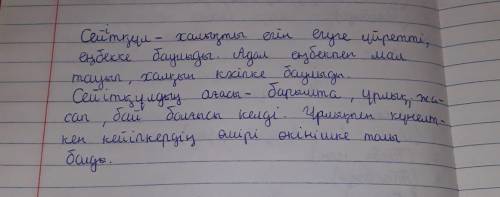 Сейітқұл - халықты егін егуге үйретті,
еңбекке баулыды. Адал еңбекпен мал
тауып, халқын кәсіпке баулыды.
Сейітқұлдың ағасы - барымта, ұрлық, жа-
сап, бай болғысы келді. Ұрлықпен күнелт-
кен кейіпкердің өмірі өкінішке толы
болды.